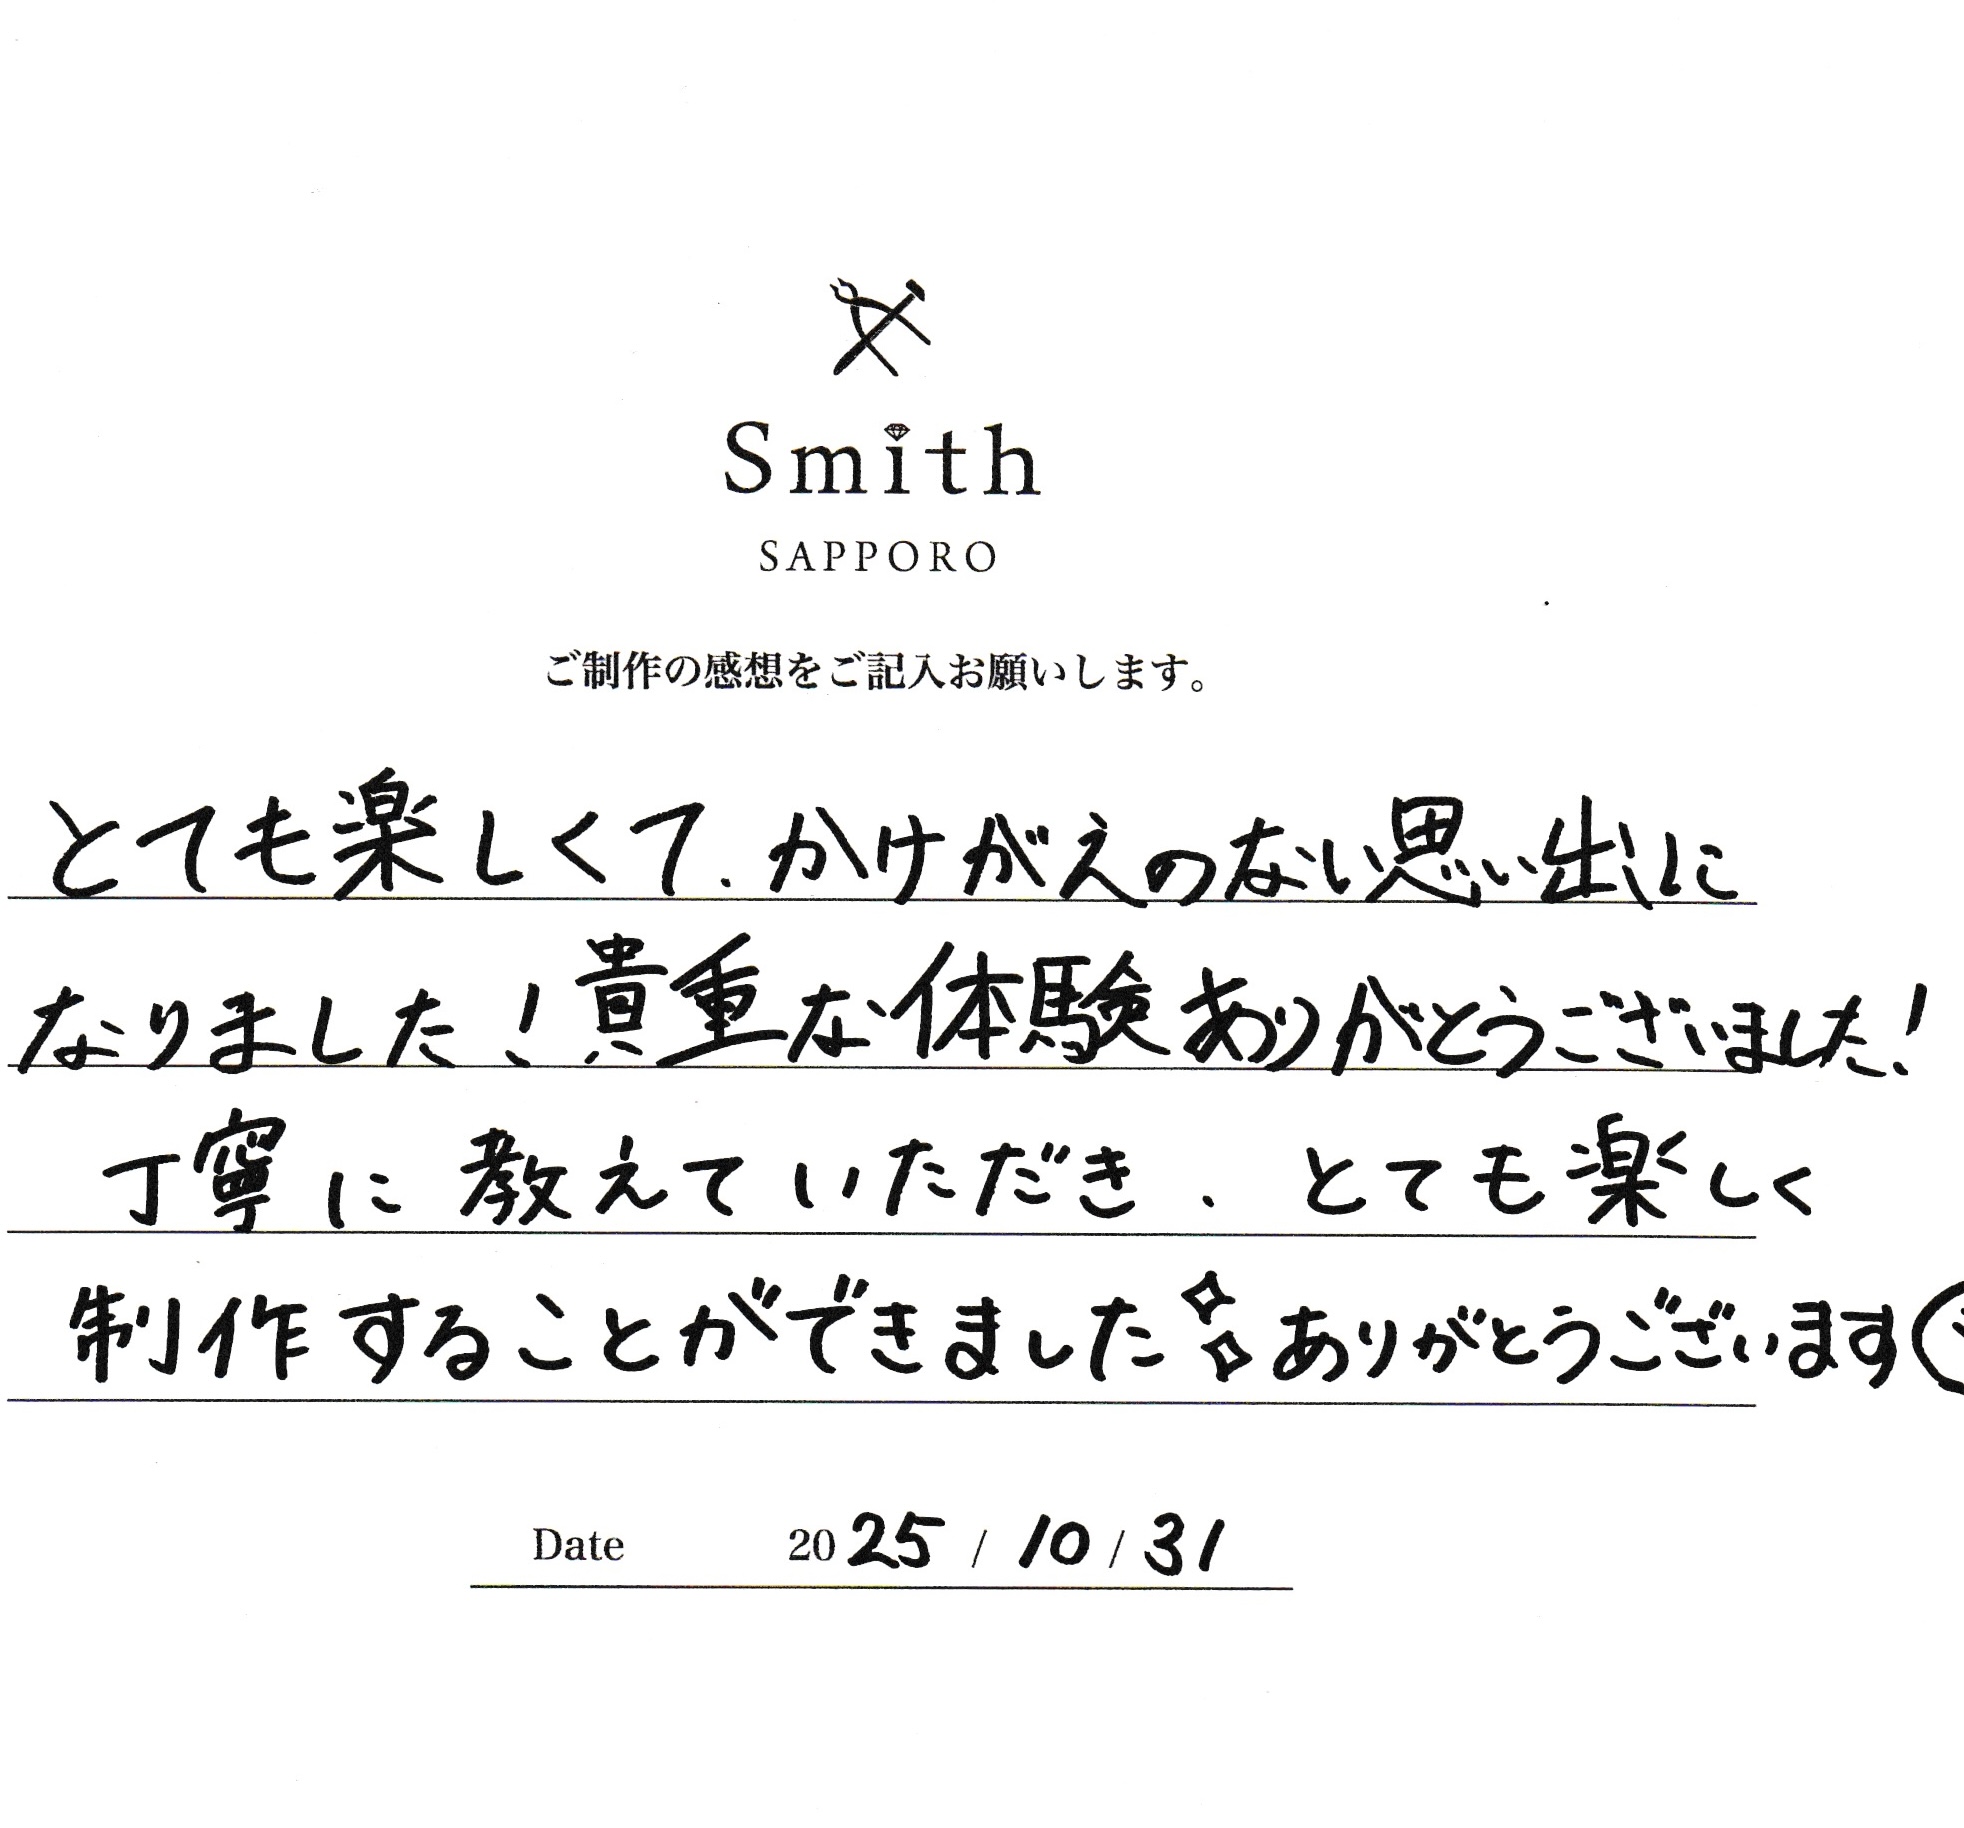 Smith
SAPPORO
ご制作の感想をご記入お願いします。
とても楽しくて、かけがえのない思い出に
なりました！貴重な体験ありがとうございました！
丁寧に教えていただき、とても楽しく
制作することができました✨ありがとうございます
Date 2025 / 10 / 31